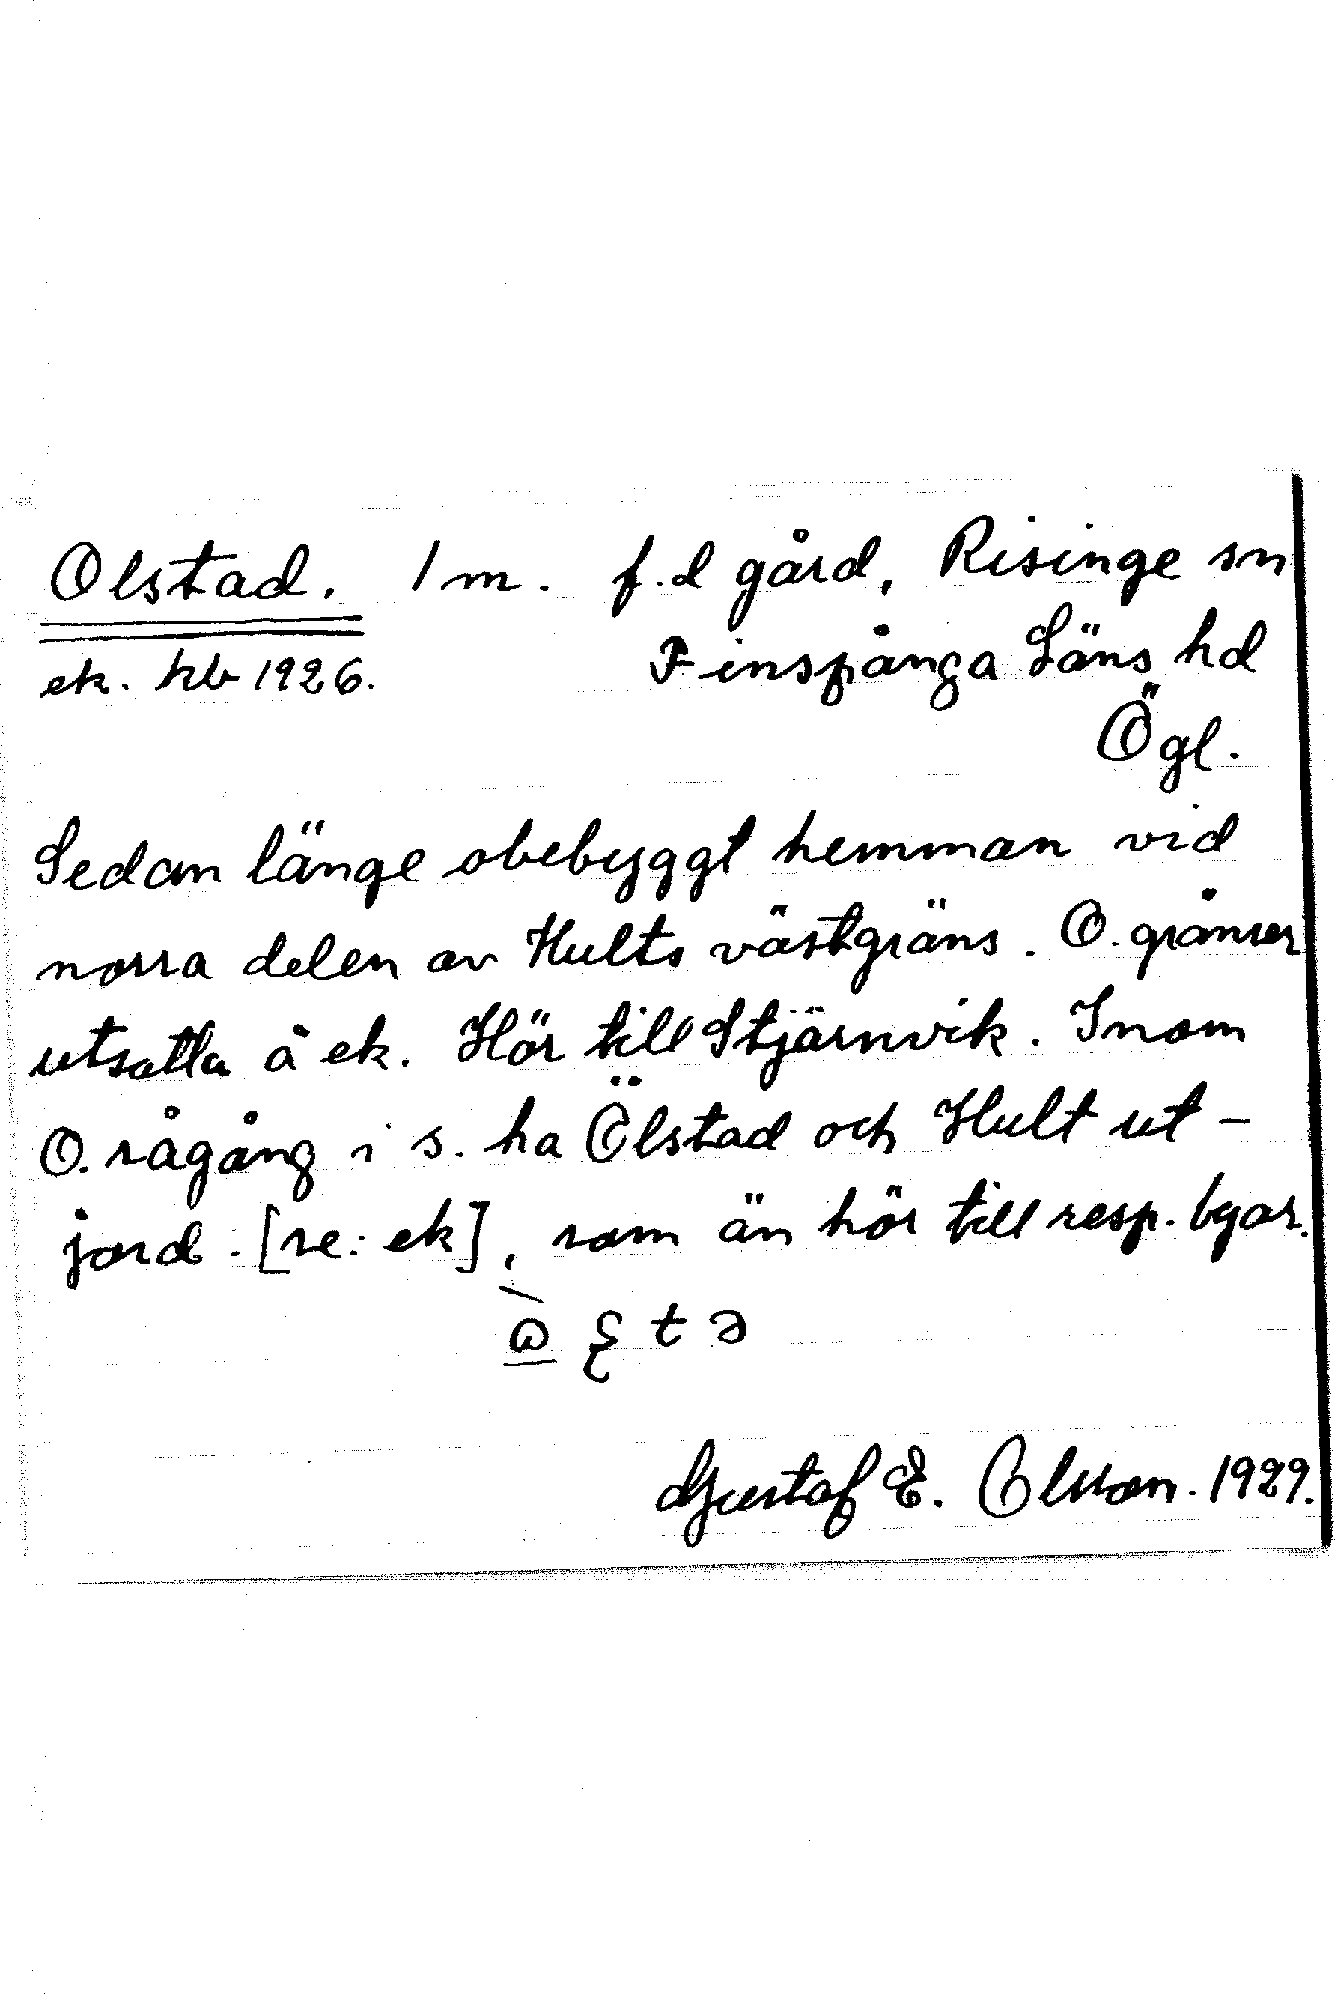 Olstad. 1 m. f.d gård, Risinge sn
ek. kb 1926. Finspånga Läns hd
Ögl.
Sedan länge obebyggt hemman vid
norra delen av Hults västgräns. O. gränser
utsatta å ek. Hör till Stjärnvik. Inom
O. rågång i s. ha Ölstad och Hult ut-
jord. [se: ek], som än hör till resp. byar.
Gustaf E. Olsson. 1929.